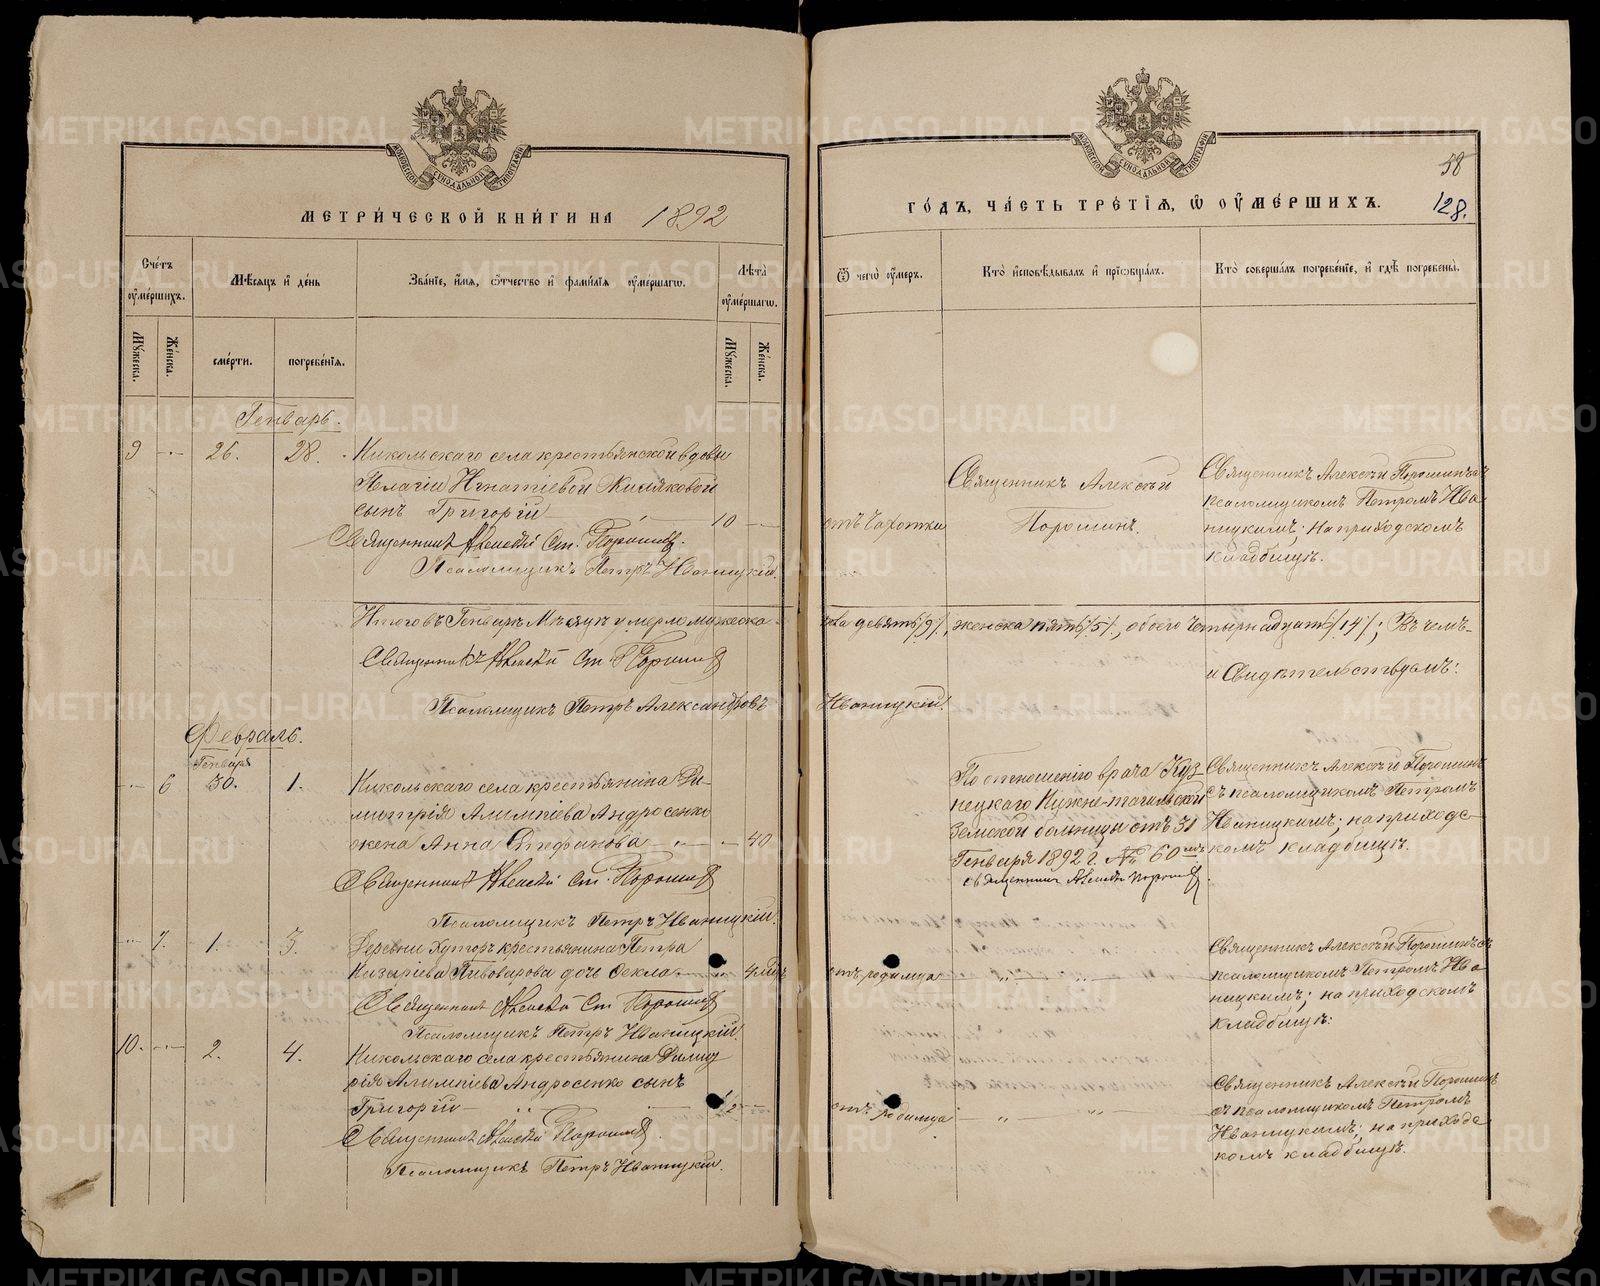 МЕТРИЧЕСКОЙ КНИГИ НА 1892
Счетъ умершихъ.
Мѣсяцъ и день
Званіе, имя, отчество и фамилія умершаго.
Лѣта умершаго.
Мужеска.
Женска.
смерти.
погребенія.
Мужеска.
Женска.
Генварь.
9 26. 28. Никольскаго села крестьянской вдовы
Пелагіи Игнатіевой Кисляковой
сынъ Григорій 10
Священникъ Алексѣй Ст. Порошинъ.
Псаломщикъ Петръ Иваницкій.
Итого въ Генварѣ Мѣсяцѣ умерло мужеска
Священникъ Алексѣй Ст. Порошинъ
Псаломщикъ Петръ Александровъ
Февраль.
Генваря
6 30. 1. Никольскаго села крестьянина Ди-
митрія Алимпіева Андросенко
жена Анна Стефанова 40
Священникъ Алексѣй Ст. Порошинъ
Псаломщикъ Петръ Иваницкій.
7. 1. 3. Деревни Хуторъ крестьянина Петра
Назаріева Пивоварова дочь Ѳекла 4 мѣс
Священникъ Алексѣй Ст Порошинъ
Псаломщикъ Петръ Иваницкій.
10. 2. 4. Никольскаго села крестьянина Димит
рія Алимпіева Андросенко сынъ
Григорій 1/2
Священникъ Алексѣй Порошинъ.
Псаломщикъ Петръ Иваницкій.
58
ГОДЪ, ЧАСТЬ ТРЕТІЯ, Ѿ УМЕРШИХЪ.
128.
Ѿ чегѡ умеръ.
Кто исповѣдывалъ и пріобщалъ.
Кто совершалъ погребеніе, и гдѣ погребены.
отъ Чахотки
Священникъ Алексѣй
Порошинъ.
Священникъ Алексѣй Порошинъ съ
псаломщикомъ Петромъ Ива-
ницкимъ; на приходскомъ
кладбищѣ.
пола девять /9/, женска пять /5/, обоего Четырнадцать /14/; Въ чемъ-
и Свидѣтельствуемъ:
Иваницкій.
По отношенію врача Куз-
нецкаго Нижне-тагильской
Земской больницы отъ 31
Генваря 1892 г. № 60мъ
священникъ Алексѣй Порошинъ.
Священникъ Алексѣй Порошинъ
съ псаломщикомъ Петромъ
Иваницкимъ; на приходс-
комъ кладбищѣ.
отъ родимца
Священникъ Алексѣй Порошинъ съ
псаломщикомъ Петромъ Ива-
ницкимъ; на приходскомъ
кладбищѣ:
отъ родимца
Священникъ Алексѣй Порошинъ
съ псаломщикомъ Петромъ
Иваницкимъ; на приходс
комъ кладбищѣ.
METRIKI.GASO-URAL.RU